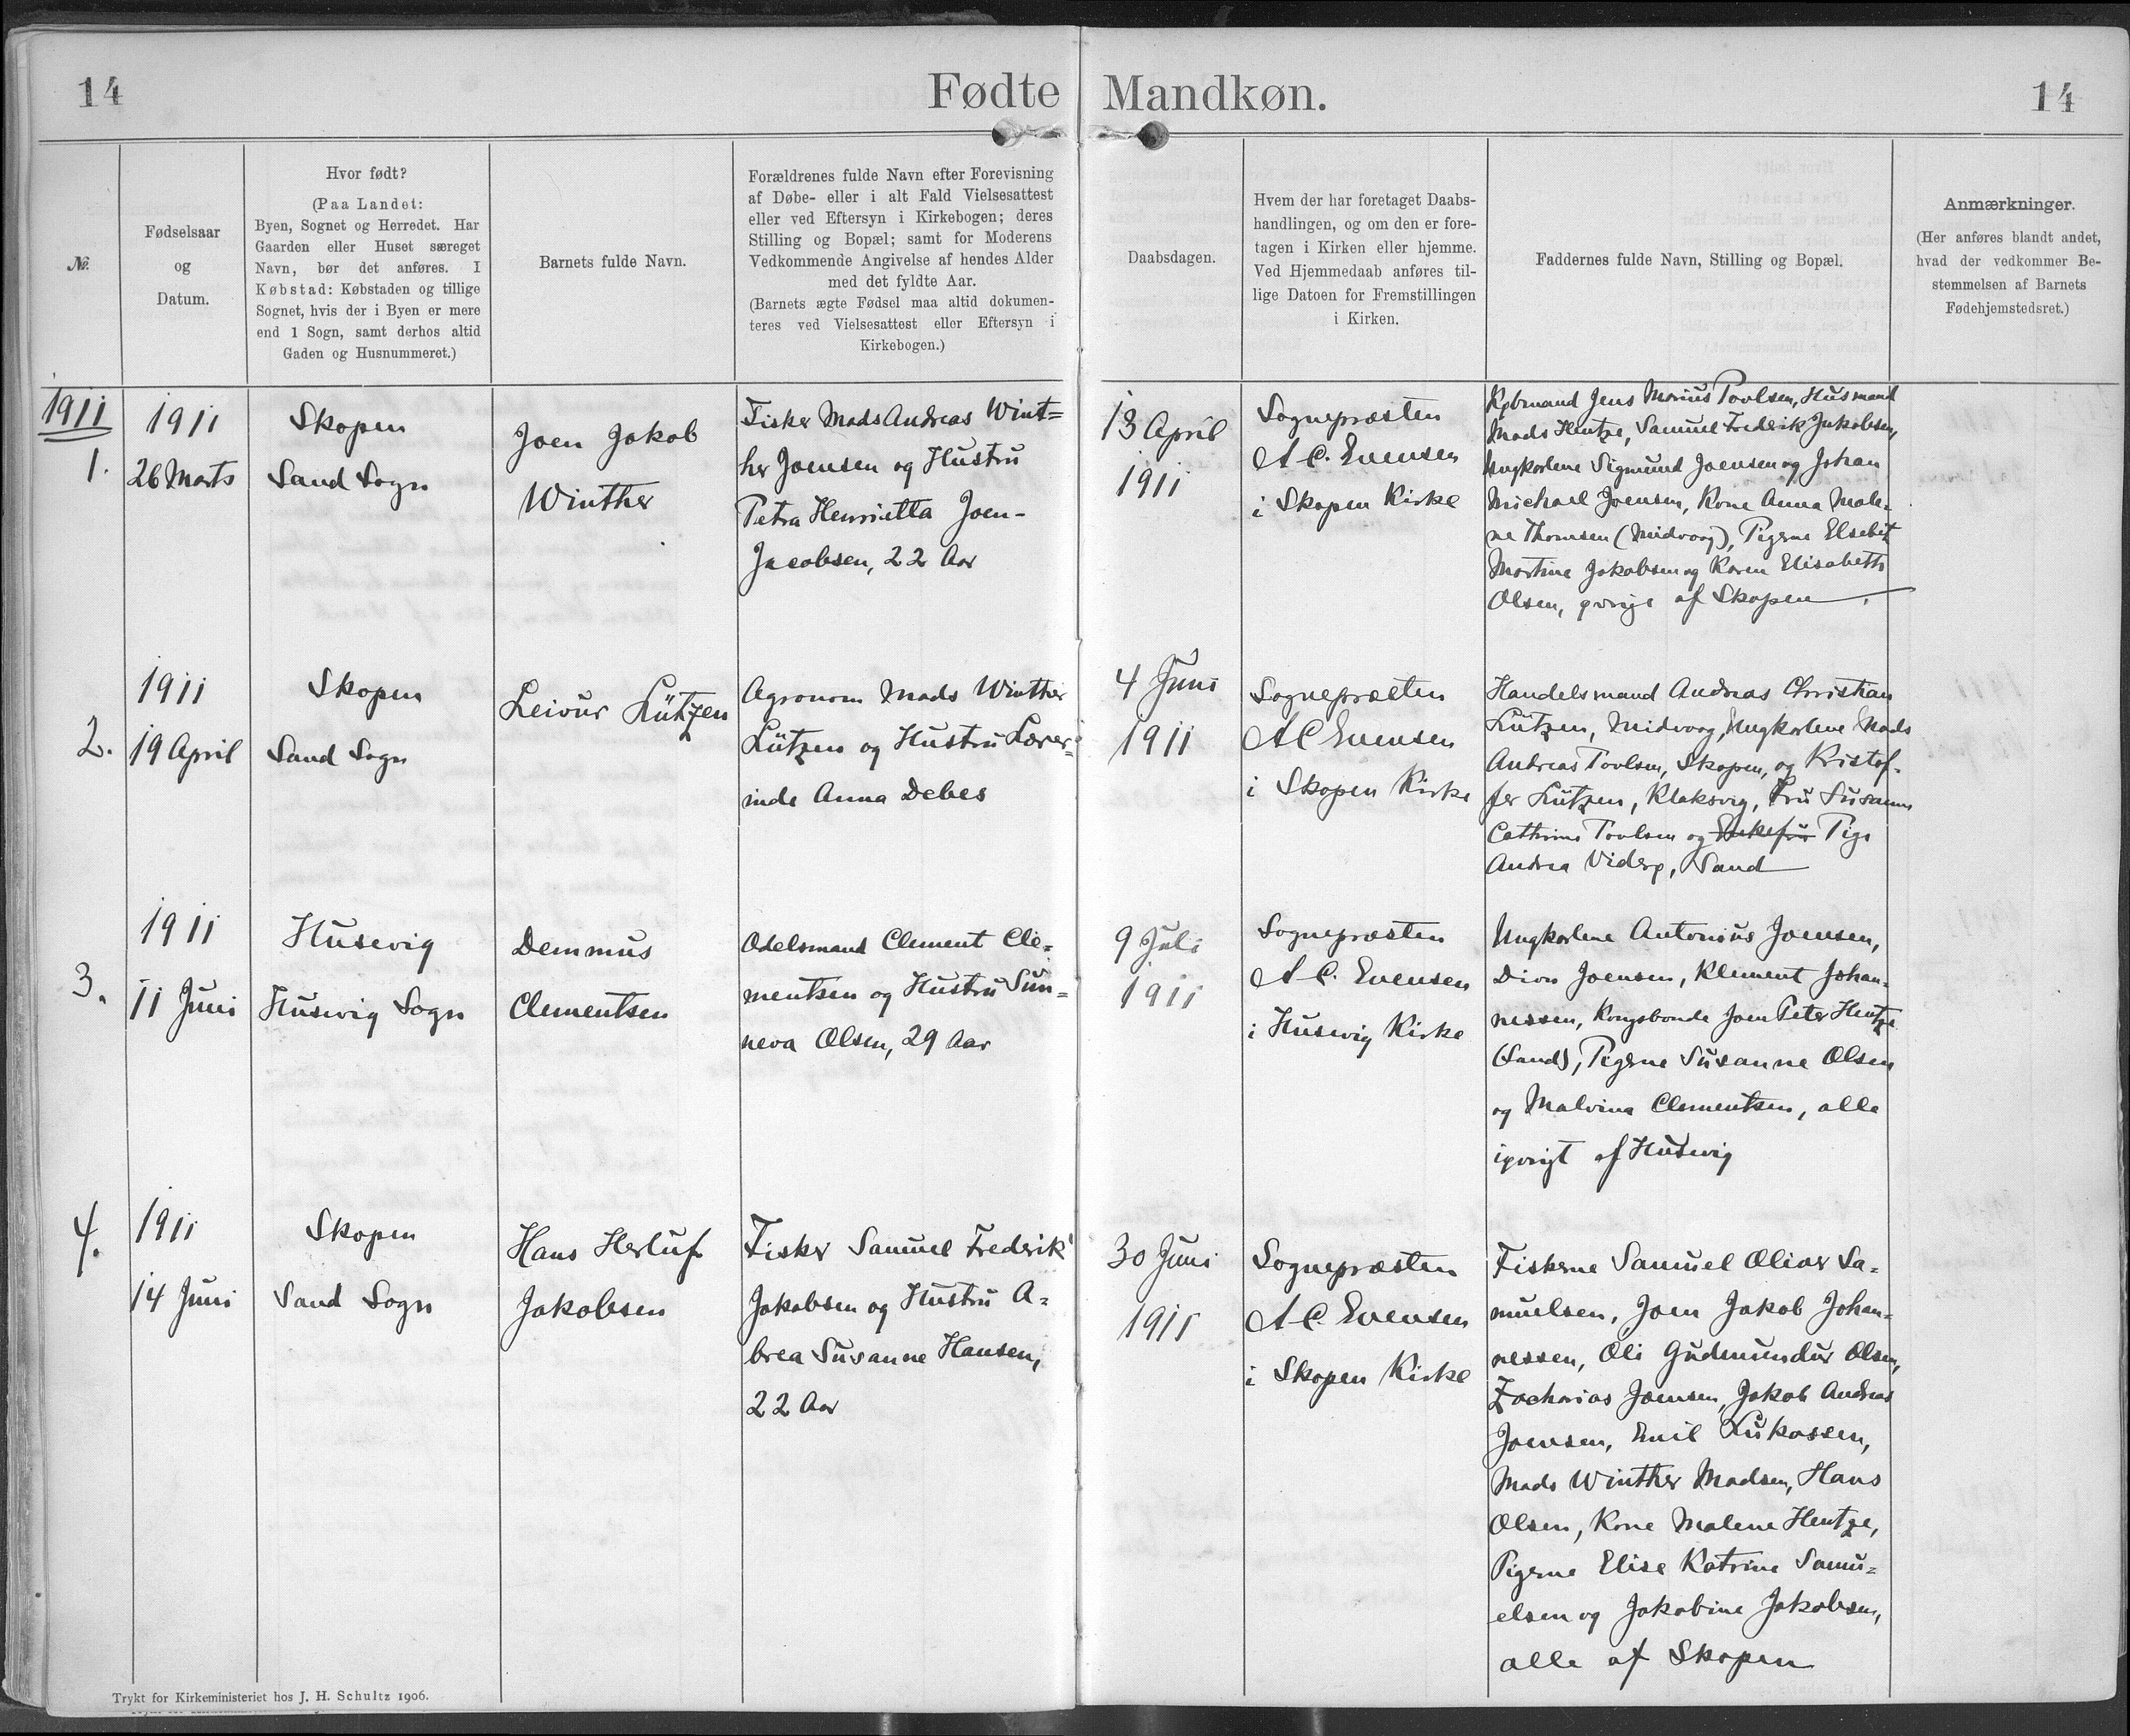 14
Fødte
Mandkøn.
14
№.
Fødselsaar
og
Datum.
Hvor født?
(Paa Landet:
Byen, Sognet og Herredet. Har
Gaarden eller Huset særeget
Navn, bør det anføres. I
Købstad: Købstaden og tillige
Sognet, hvis der i Byen er mere
end 1 Sogn, samt derhos altid
Gaden og Husnummeret.)
Barnets fulde Navn.
Forældrenes fulde Navn efter Forevisning
af Døbe- eller i alt Fald Vielsesattest
eller ved Eftersyn i Kirkebogen; deres
Stilling og Bopæl; samt for Moderens
Vedkommende Angivelse af hendes Alder
med det fyldte Aar.
(Barnets ægte Fødsel maa altid dokumen-
teres ved Vielsesattest eller Eftersyn i
Kirkebogen.)
Daabsdagen.
Hvem der har foretaget Daabs-
handlingen, og om den er fore-
tagen i Kirken eller hjemme.
Ved Hjemmedaab anføres til-
lige Datoen for Fremstillingen
i Kirken.
Faddernes fulde Navn, Stilling og Bopæl.
Anmærkninger.
(Her anføres blandt andet,
hvad der vedkommer Be-
stemmelsen af Barnets
Fødehjemstedsret.)
1911
1.
1911
26 Marts
Skopen
Sand Sogn
Joen Jakob
Winther
Fisker Mads Andreas Wint=
her Joensen og Hustru
Petra Henrietta Joen-
Jacobsen, 22 Aar
13 April
1911
Sognepræsten
A C. Evensen
i Skopen Kirke
Købmand Jens Marius Poulsen, Husmand
Mads Hentze, Samuel Frederik Jakobsen,
Ungkarlene Sigmund Joensen og Johan
Michael Joensen, Kone Anna Male-
ne Thomsen (Midvaag), Pigerne Elsebet
Martine Jakobsen og Karen Elisabeth
Olsen, øvrige af Skopen.
2.
1911
19 April
Skopen
Sand Sogn
Leivur Lützen
Agronom Mads Winther
Lützen og Hustru Lærer=
inde Anna Debes
4 Juni
1911
Sognepræsten
A C Evensen
i Skopen Kirke
Handelsmand Andreas Christian
Lützen, Midvaag, Ungkarlene Mads
Andreas Poulsen, Skopen, og Kristof-
fer Lützen, Klaksvig, Fru Susanne
Cathrine Poulsen og Enkefru Pige
Andrea Viderø, Sand
3.
1911
11 Juni
Husevig
Husevig Sogn
Demmus
Clementsen
Odelsmand Clement Cle=
mentsen og Hustru Sun=
neva Olsen, 29 Aar
9 Juli
1911
Sognepræsten
A C. Evensen
i Husevig Kirke
Ungkarlene Antonius Joensen,
Joensen, Klement Johan-
nessen, Kongsbonde Joen Peter Hentze
(Sand), Pigerne Susanne Olsen
og Malvina Clementsen, alle
iøvrigt af Husevig
4.
1911
14 Juni
Skopen
Sand Sogn
Hans Herluf
Jakobsen
Fisker Samuel Frederik
Jakobsen og Hustru A=
brea Susanne Hansen,
22 Aar
30 Juni
1911
Sognepræsten
A C. Evensen
i Skopen Kirke
Fiskerne Samuel Oliver Sa=
muelsen, Joen Jakob Johan=
nessen, Oli Gudmundur Olsen,
Zacharias Joensen, Jakob Andreas
Joensen, Emil Lukassen,
Mads Winther Madsen, Hans
Olsen, Kone Malene Hentze,
Pigerne Elise Katrine Samu=
elsen og Jakobine Jakobsen,
alle af Skopen
Trykt for Kirkeministeriet hos J. H. Schultz 1906.